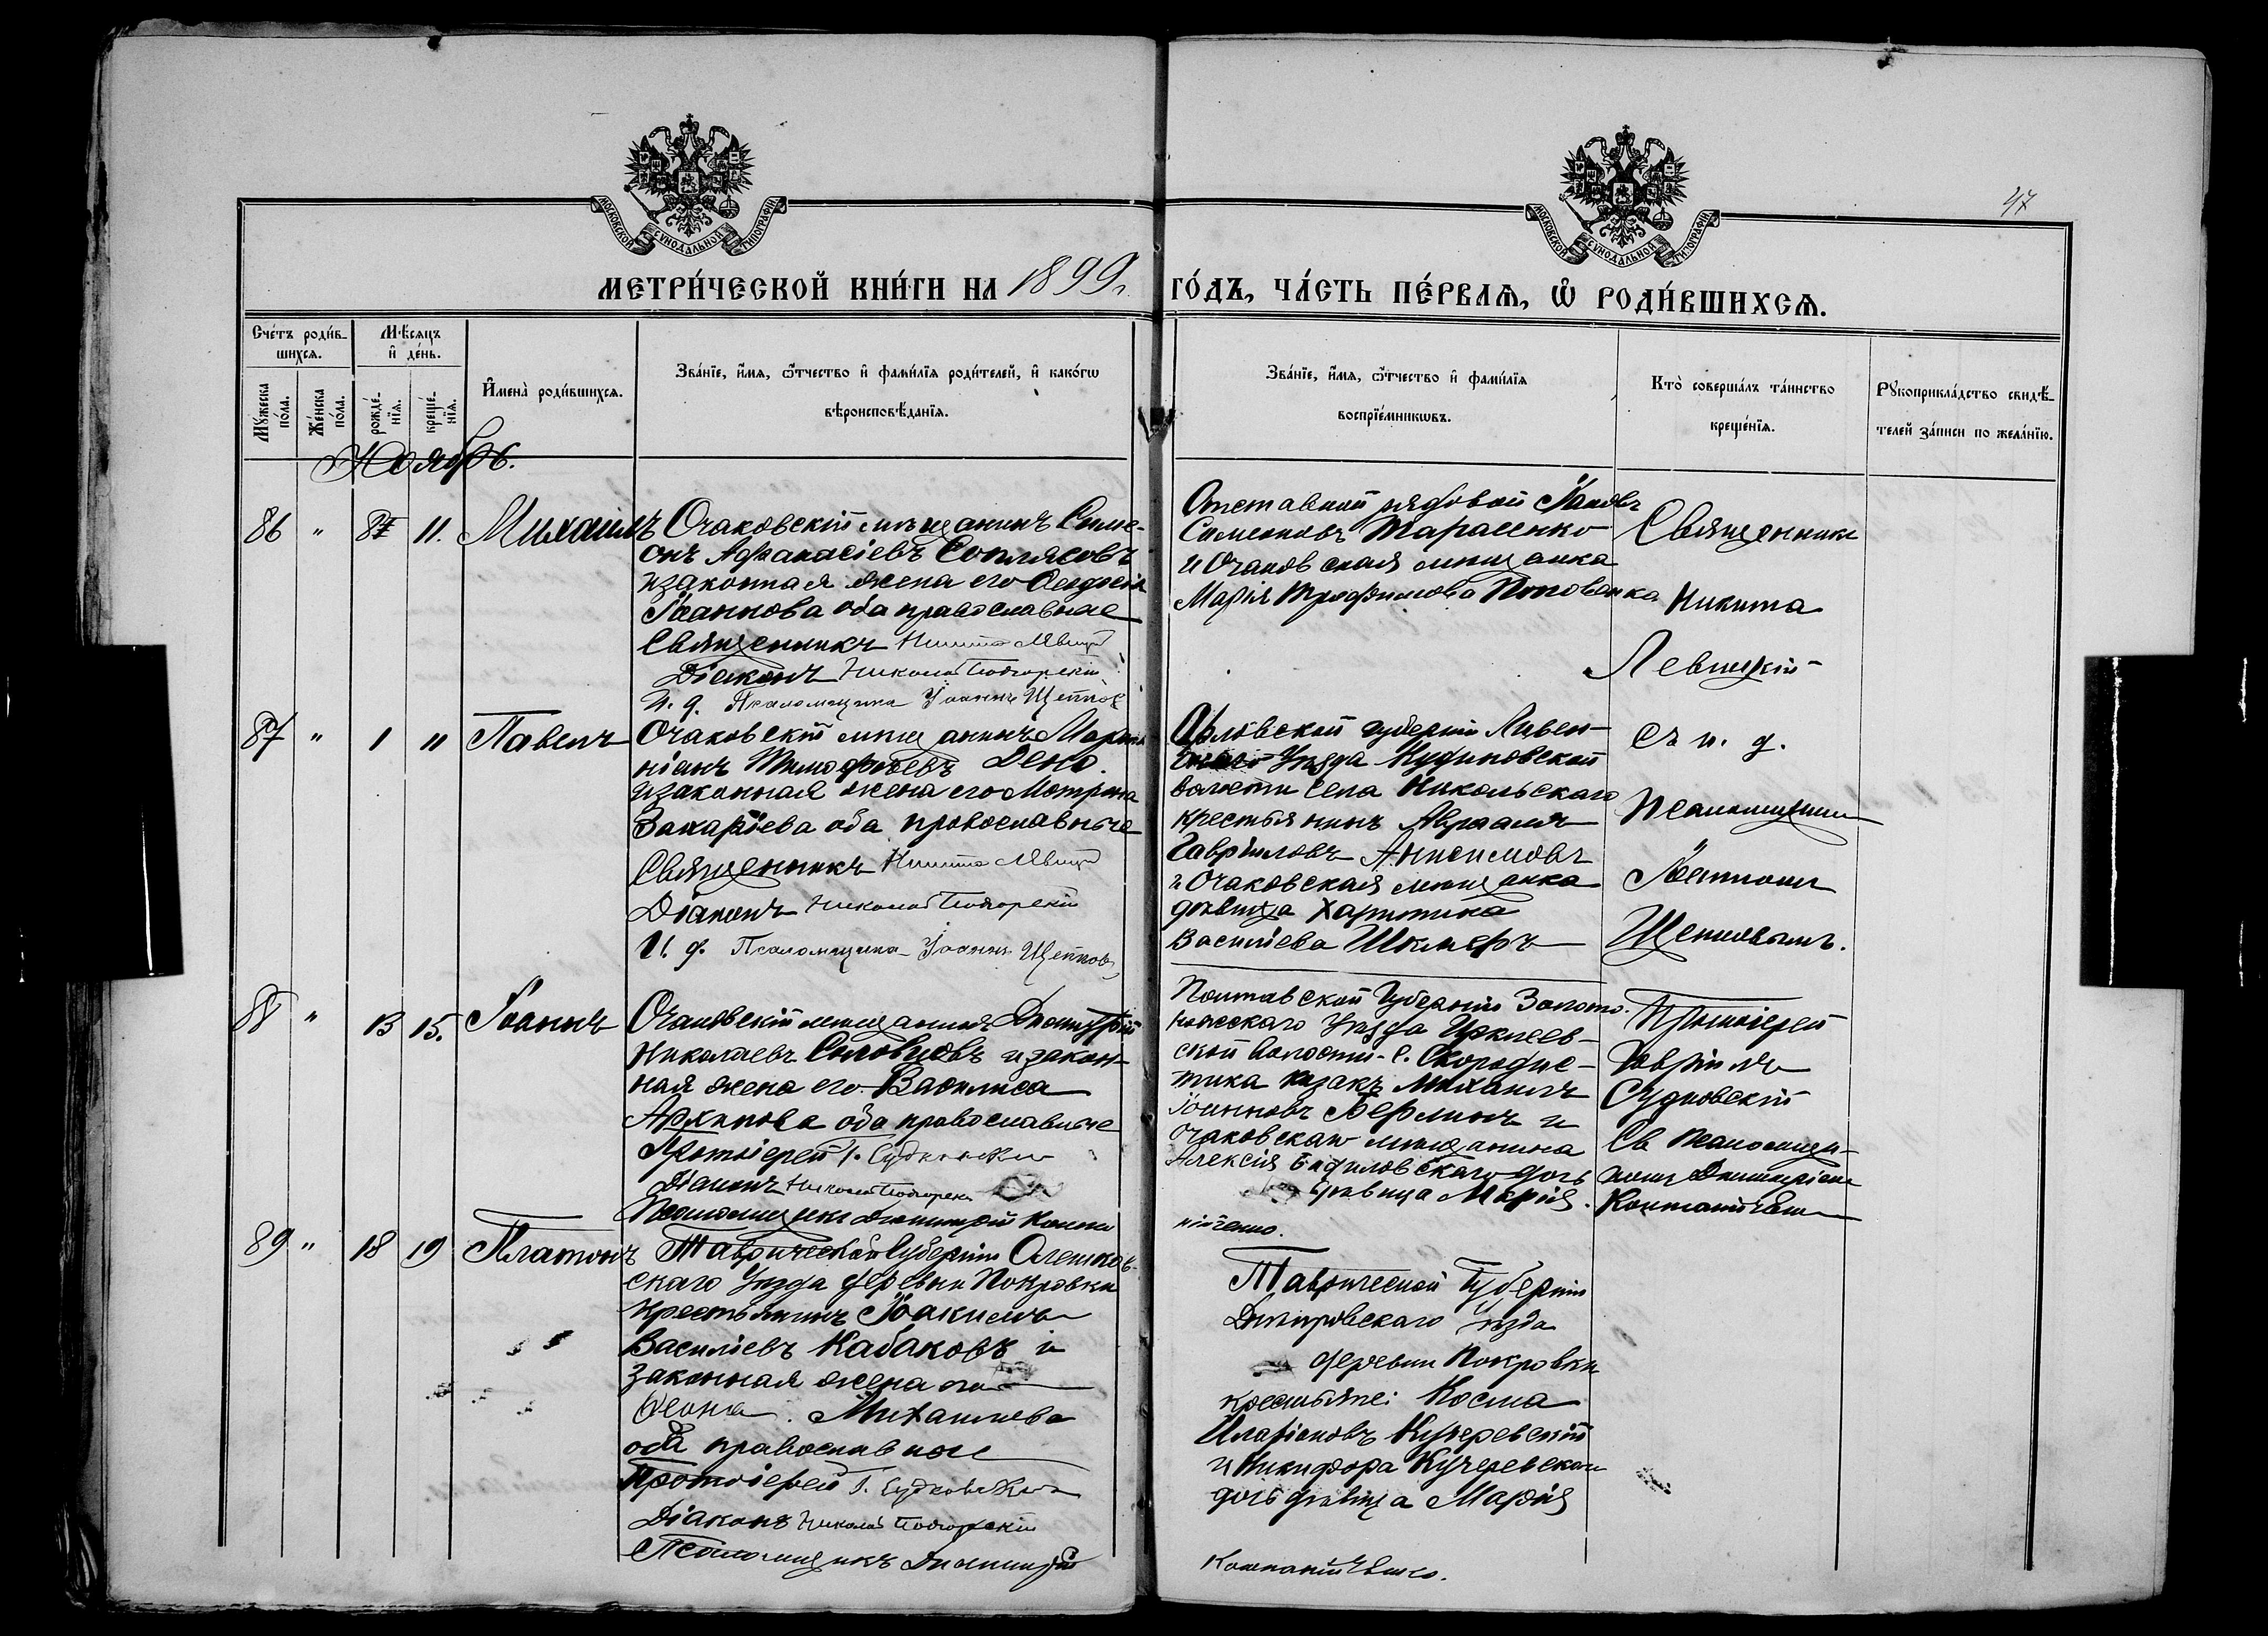 МОСКОВСКОЙ СѴНОДАЛЬНОЙ ТИПОГРАФІИ
МОСКОВСКОЙ СѴНОДАЛЬНОЙ ТИПОГРАФІИ
47
МЕТРИ́ЧЕСКОЙ КНИ́ГИ НА 1899 г.
ГО́ДЪ, ЧА́СТЬ ПЕ́РВАѦ, Ѡ҆ РОДИ́ВШИХСѦ.
Сче́тъ роди́в-
шихсѧ.
Мѣ́сѧцъ
и҆ де́нь.
Мꙋ́жеска
по́ла.
Же́нска
по́ла.
рожде́-
нїѧ.
креще́-
нїѧ.
И҆мена̀ роди́вшихсѧ.
Зва́нїе, и҆́мѧ, ѻ҆́тчество и҆ фами́лїѧ роди́телей, и҆ како́гѡ
вѣроисповѣ́данїѧ.
Зва́нїе, и҆́мѧ, ѻ҆́тчество и҆ фами́лїѧ
воспрїе́мникѡвъ.
Кто̀ соверша́лъ та́инство
креще́нїѧ.
Рꙋкоприкла́дство свидѣ́-
телей за́писи по жела́нїю.
Ноябрь.
86 " 8 11. Михаилъ
Очаковскій мѣщанинъ Симе-
онъ Афанасіевъ Соплясовъ
и законная жена его Ѳеодосія
Іоаннова оба православные
Священникъ Никита Левицкій
Діаконъ Николай Подгорскій
И. д. Псаломщика Іоаннъ Щепковъ
Отставной рядовой Іаковъ
Симеоновъ Тарасенко
и Очаковская мѣщанка
Марія Трофимова Поповенка
Священникъ
Никита
Левицкій
87 " 1 11 Павелъ
Очаковскій мѣщанинъ Марти-
ніанъ Тимофѣевъ Дено
и законная жена его Матрона
Захаріева оба православные
Священникъ Никита Левицкій
Діаконъ Николай Подгорскій
И. д. Псаломщика Іоаннъ Щепковъ
Орловской губерніи Ливен-
скаго Уѣзда
волости села Никольскаго
крестьянинъ Авраамъ
Гавріиловъ Анисимовъ
и Очаковская мѣщанка
дѣвица Харитина
Васильева
съ и. д.
Псаломщика
Іоанномъ
Щепковымъ.
88 " 13 15. Іоаннъ
Очаковскій мѣщанинъ Димитрій
Николаевъ Соловцовъ и закон-
ная жена его Василиса
Архипова оба православные
Протоіерей Г. Судковскій
Діаконъ Николай Подгорскій
Псаломщикъ Димитрій Компа
нійченко.
Полтавской Губерніи Золото-
ношскаго Уѣзда Иркліев-
ской волости с. Скородис-
тика казакъ Михаилъ
Іоанновъ и
Очаковскаго мѣщанина
Алексія дочь
дѣвица Марія.
Протоіерей
Гавріилъ
Судковскій
Съ Псаломщи-
комъ Димитріемъ
89 " 18 19 Платонъ
Таврической Губерніи Олешков-
скаго Уѣзда деревни Покровки
крестьянинъ Іоакимъ
Василіевъ Кабаковъ и
законная жена его
Михаилева
оба православные
Протоіерей Г. Судковскій
Діаконъ Николай Подгорскій
Псаломщикъ Димитрій
Таврической Губерніи
Днѣпровскаго Уѣзда
деревни Покровки
крестьяне: Косма
Иларіоновъ Кучеревскій
и Никифора Кучеревскаго
дочь дѣвица Марія
Компанійченко.